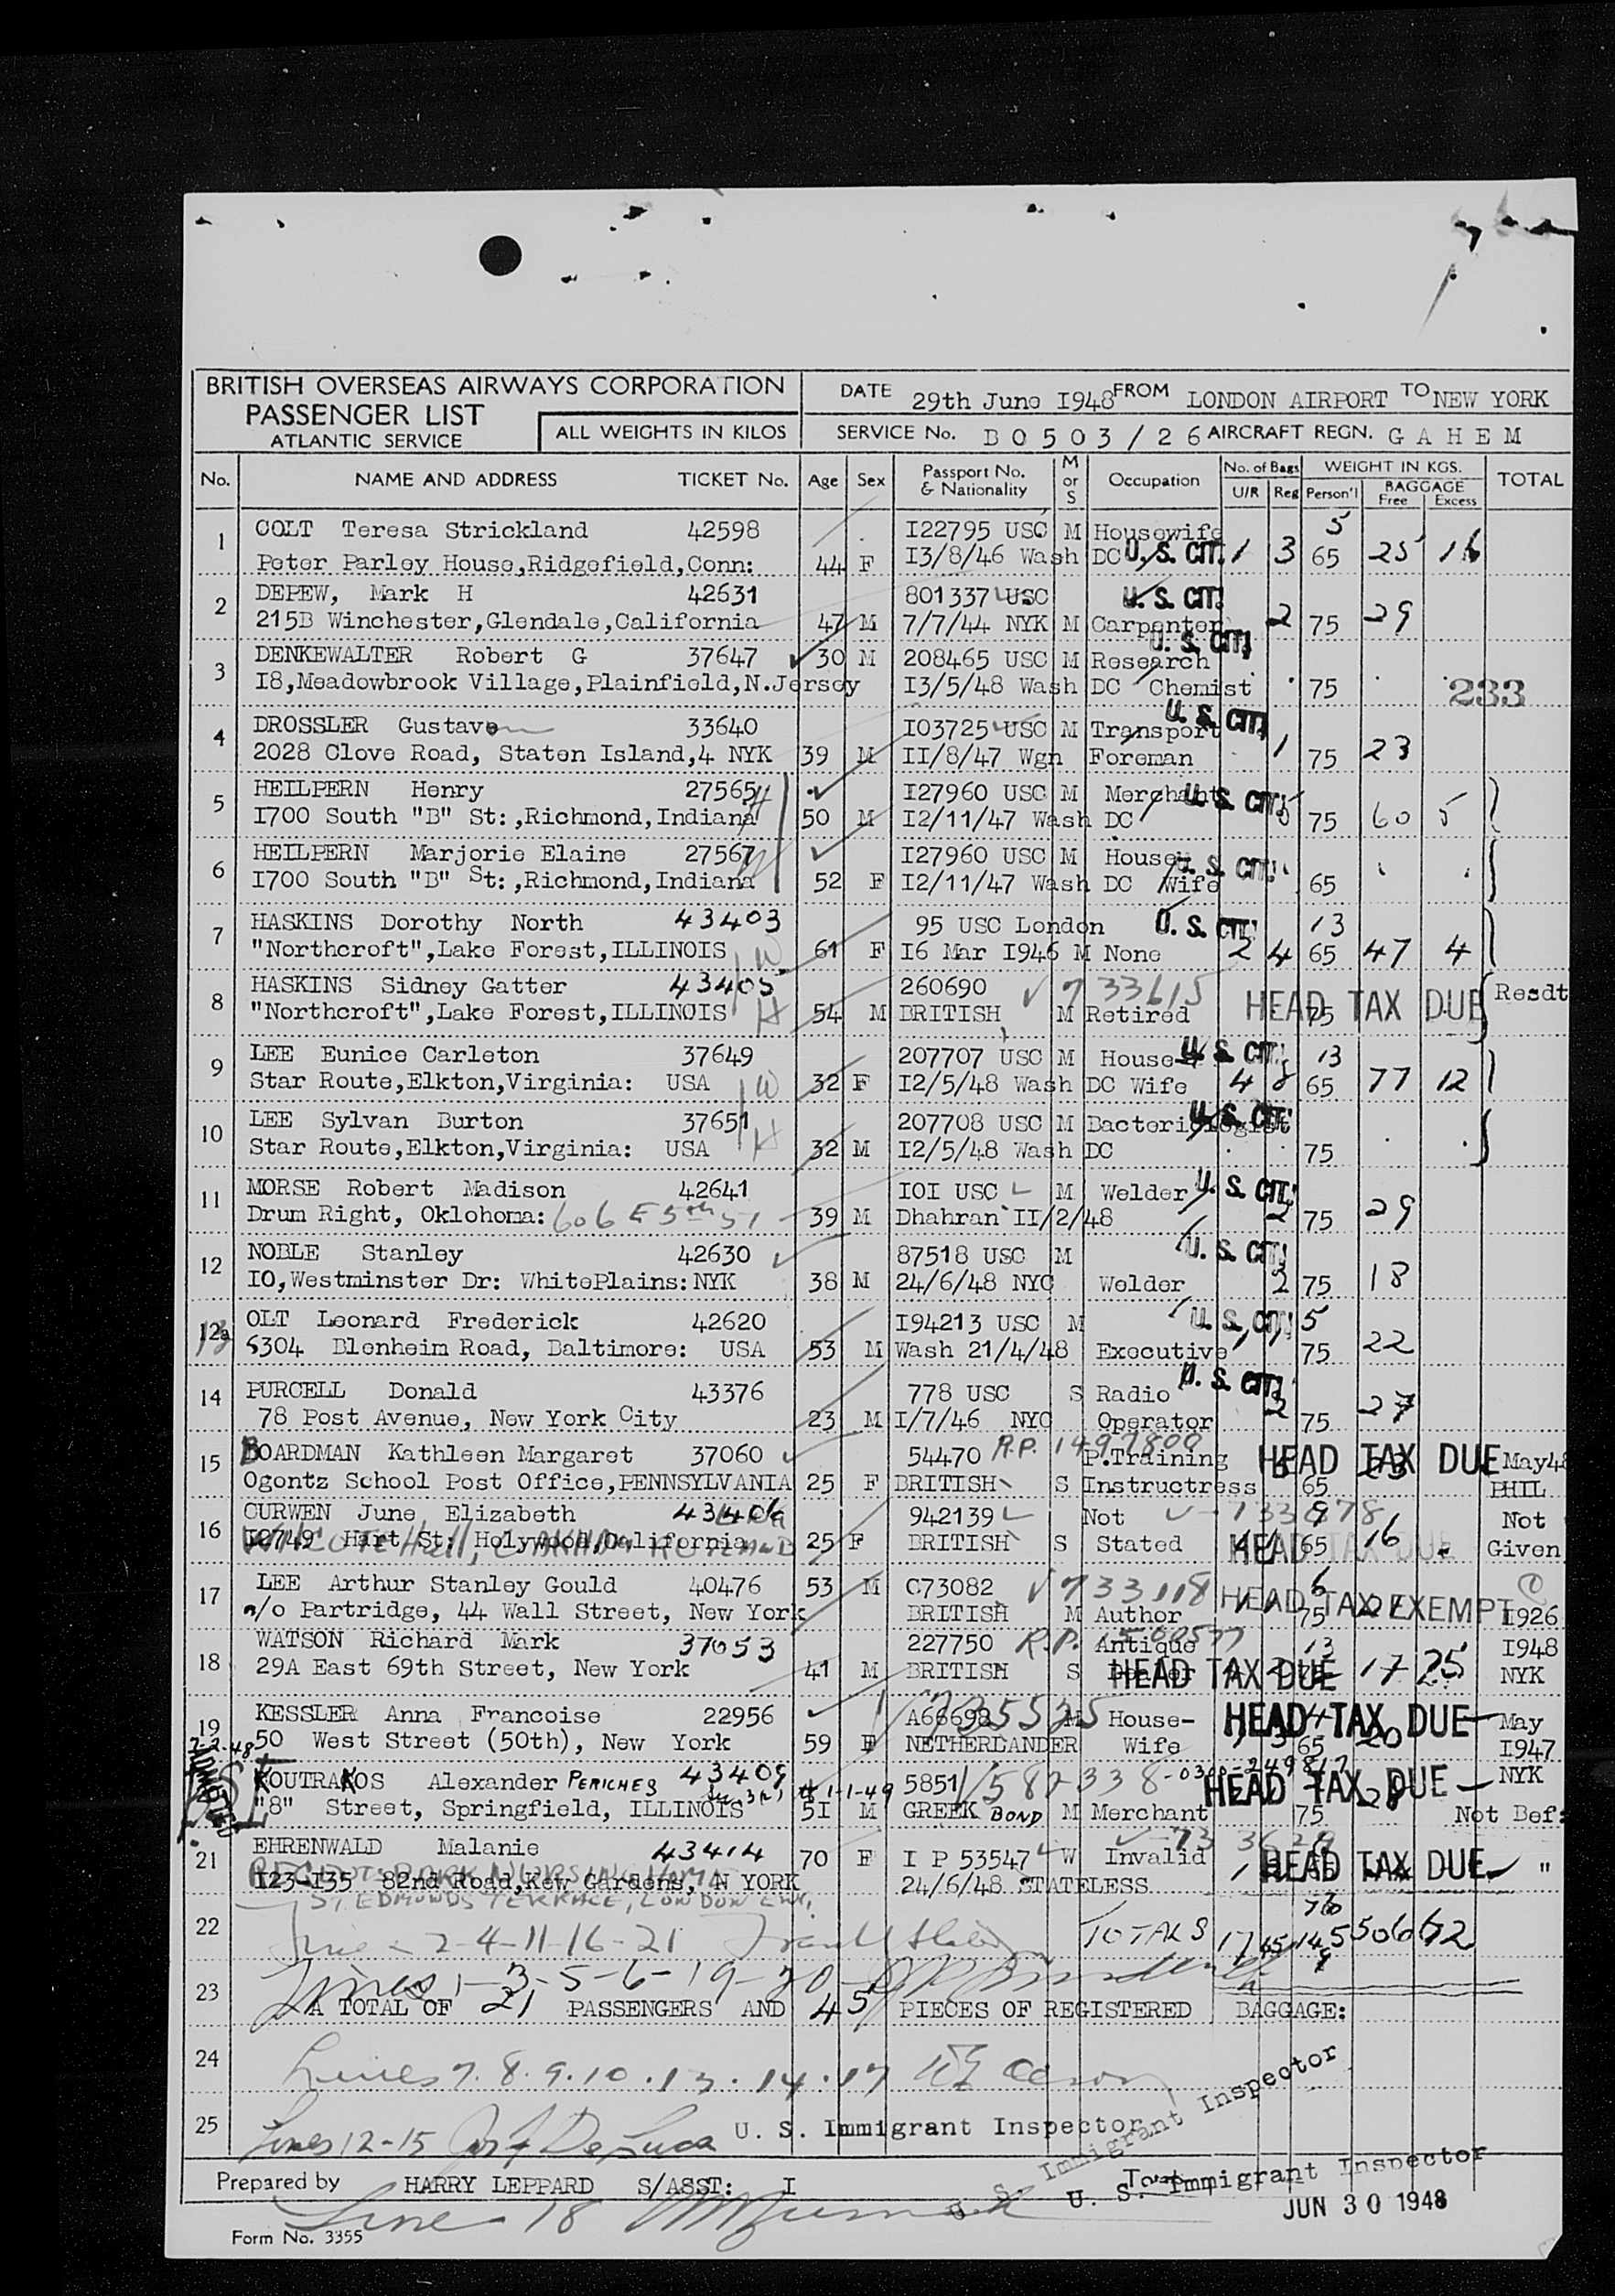 BRITISH OVERSEAS AIRWAYS CORPORATION
PASSENGER LIST
ATLANTIC SERVICE
ALL WEIGHTS IN KILOS
DATE 29th June I948 FROM LONDON AIRPORT TO NEW YORK
SERVICE No. B O 5 0 3 / 2 6 AIRCRAFT REGN. G A H E M
No. NAME AND ADDRESS TICKET No. Age Sex Passport No. & Nationality M or S Occupation No. of Bags U/R Reg WEIGHT IN KGS. Person'l BAGGAGE Free Excess TOTAL
1 COLT Teresa Strickland 42598 I22795 USC M Housewife 5
Peter Parley House,Ridgefield,Conn: 44 F I3/8/46 Wash DC U. S. CIT. 1 3 65 25 16
2 DEPEW, Mark H 42631 801337 USC U. S. CIT.
215B Winchester,Glendale,California 47 M 7/7/44 NYK M Carpenter 2 75 29
3 DENKEWALTER Robert G 37647 30 M 208465 USC M Research U. S. CIT.
I8,Meadowbrook Village,Plainfield,N.Jersey I3/5/48 Wash DC Chemist 75 233
4 DROSSLER Gustave 33640 I03725 USC M Transport U. S. CIT.
2028 Clove Road, Staten Island,4 NYK 39 M II/8/47 Wgn Foreman 1 75 23
5 HEILPERN Henry 27565 H I27960 USC M Merchant U. S. CIT.
I700 South "B" St:,Richmond,Indiana 50 M I2/11/47 Wash DC 75 60 5
6 HEILPERN Marjorie Elaine 27567 W I27960 USC M House U. S. CIT.
I700 South "B" St:,Richmond,Indiana 52 F I2/11/47 Wash DC Wife 65
7 HASKINS Dorothy North 43403 95 USC London U. S. CIT. 13
"Northcroft",Lake Forest,ILLINOIS W 61 F I6 Mar I946 M None 2 4 65 47 4
8 HASKINS Sidney Gatter 43405 260690 733615 HEAD TAX DUE Resdt
"Northcroft",Lake Forest,ILLINOIS H 54 M BRITISH M Retired 75
9 LEE Eunice Carleton 37649 207707 USC M House- U. S. CIT. 13
Star Route,Elkton,Virginia: USA W 32 F I2/5/48 Wash DC Wife 4 8 65 77 12
10 LEE Sylvan Burton 37651 207708 USC M Bacteriologist U. S. CIT.
Star Route,Elkton,Virginia: USA H 32 M I2/5/48 Wash DC 75
11 MORSE Robert Madison 42641 I0I USC M Welder U. S. CIT.
Drum Right, Oklohoma: 606 E 5th St 39 M Dhahran II/2/48 2 75 29
12 NOBLE Stanley 42630 87518 USC M U. S. CIT.
I0,Westminster Dr: WhitePlains: NYK 38 M 24/6/48 NYC Welder 2 75 18
12a 13 OLT Leonard Frederick 42620 I94213 USC M U. S. CIT. 5
5304 Blenheim Road, Baltimore: USA 53 M Wash 21/4/48 Executive 75 22
14 PURCELL Donald 43376 778 USC S Radio U. S. CIT.
78 Post Avenue, New York City 23 M I/7/46 NYC Operator 2 75 27
15 BOARDMAN Kathleen Margaret 37060 54470 R.P. 1497800 P.Training HEAD TAX DUE May48
Ogontz School Post Office,PENNSYLVANIA 25 F BRITISH S Instructress 65 PHIL
16 CURWEN June Elizabeth 43406 942139 Not 733878 9 Not
I2749 Hart St: Holywood,California 25 F BRITISH S Stated HEAD TAX DUE 65 16 Given
17 LEE Arthur Stanley Gould 40476 53 M C73082 733118 HEAD TAX EXEMPT
c/o Partridge, 44 Wall Street, New York BRITISH M Author 75 I926
WATSON Richard Mark 37053 227750 R.P. Antique 13 I948
18 29A East 69th Street, New York 41 M BRITISH S Dealer HEAD TAX DUE 17 25 NYK
19 KESSLER Anna Francoise 22956 A66698 735525 M House- HEAD TAX DUE May
50 West Street (50th), New York 59 F NETHERLANDER Wife 65 20 I947
7-2-48 ADMITTED KOUTRAKOS Alexander PERICLES 43409 1-1-49 5851 582338 HEAD TAX DUE NYK
"8" Street, Springfield, ILLINOIS 5I M GREEK BOND M Merchant 75 28 Not Bef:
21 EHRENWALD Malanie 43414 70 F I P 53547 W Invalid HEAD TAX DUE "
I23-I35 82nd Road,Kew Gardens, N YORK 24/6/48 STATELESS
ST. EDMUNDS TERRACE, LONDON
22 Lines 2-4-11-16-21 TOTALS 17 45 506 62
23 Lines 1-3-5-6-19-20
A TOTAL OF 21 PASSENGERS AND 45 PIECES OF REGISTERED BAGGAGE:
24 Lines 7. 8. 9. 10. 13. 14. 17
25 Lines 12-15 U. S. Immigrant Inspector
U. S. Immigrant Inspector
U. S. Immigrant Inspector
Prepared by HARRY LEPPARD S/ASST: I
JUN 30 1948
Line 18
Form No. 3355